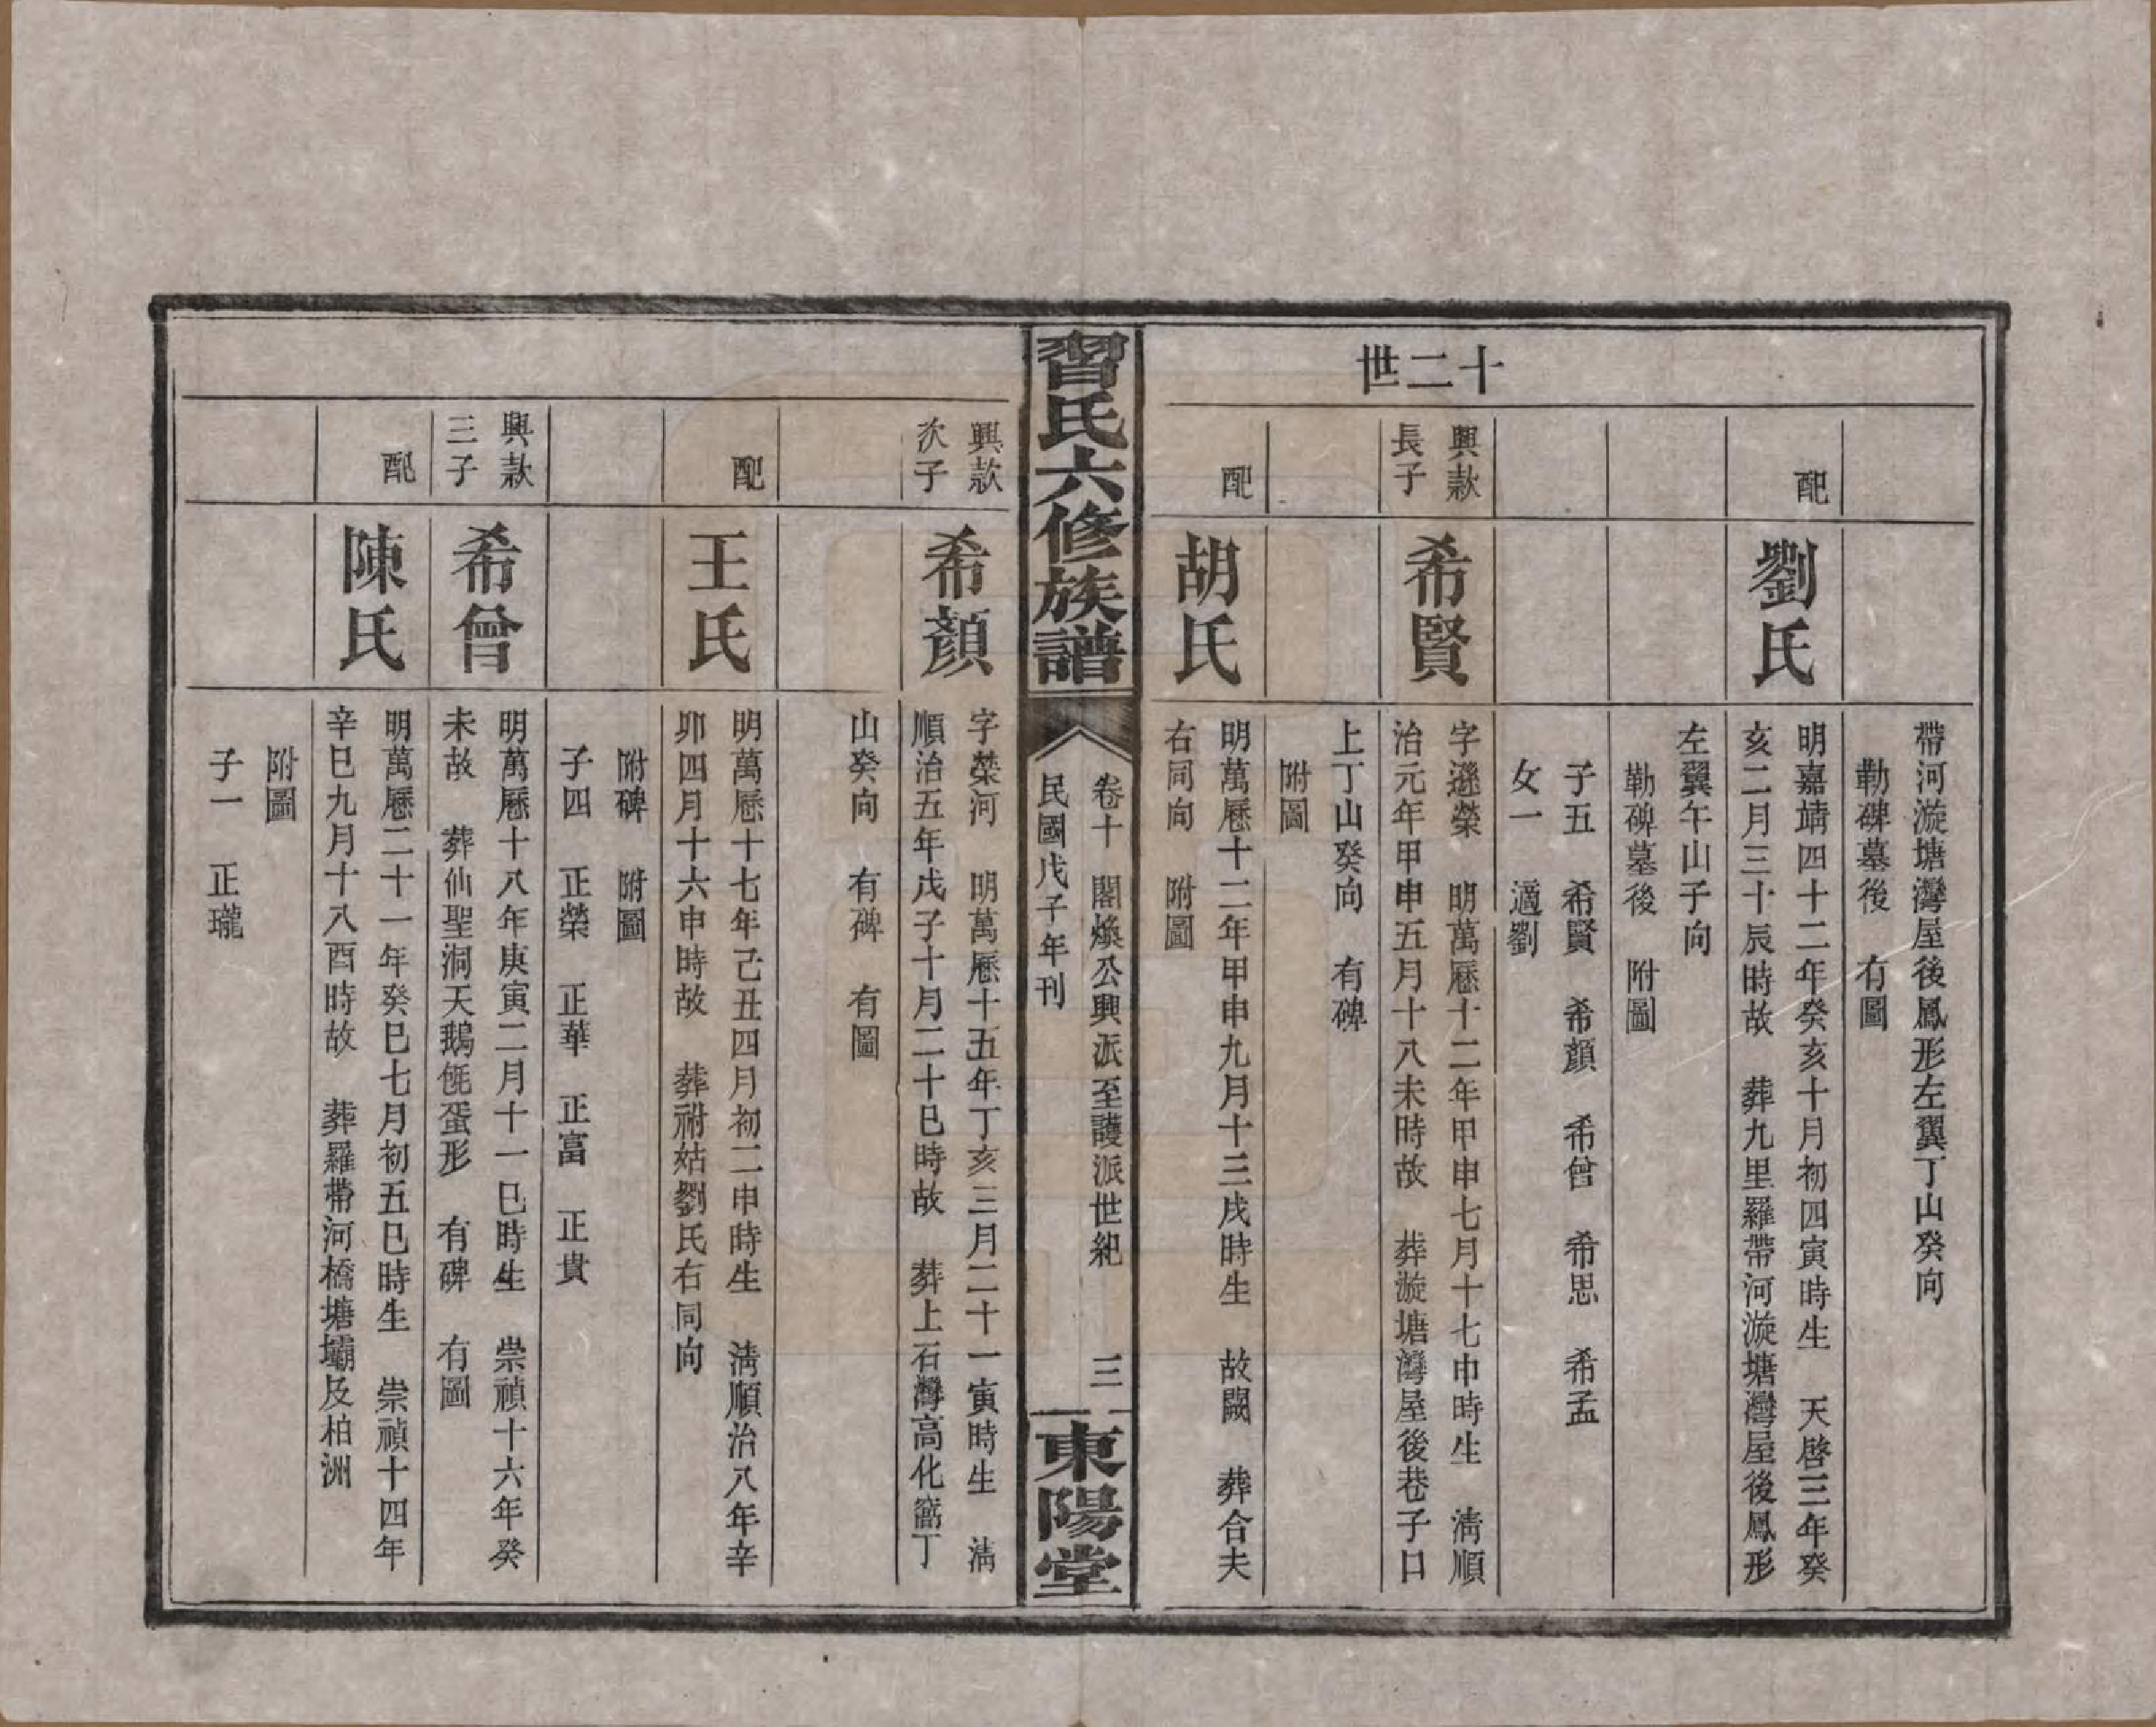 帶河漩塘灣屋後鳳形左翼丁山癸向
勒碑墓後 有圖
配
劉氏
明嘉靖四十二年癸亥十月初四寅時生 天啓三年癸
亥二月三十辰時故 葬九里羅帶河漩塘灣屋後鳳形
左翼午山子向
勒碑墓後 附圖
子五 希賢 希顏 希曾 希思 希孟
女一 適劉
十二世
興款
長子
希賢
字遜榮 明萬曆十二年甲申七月十七申時生 淸順
治元年甲申五月十八未時故 葬漩塘灣屋後巷子口
上丁山癸向 有碑
附圖
配
胡氏
明萬曆十二年甲申九月十三戌時生 故闕 葬合夫
右同向 附圖
習氏六修族譜
卷十 閣煥公興派至護派世紀 三
民國戊子年刊
東陽堂
興款
次子
希顏
字榮河 明萬曆十五年丁亥三月二十一寅時生 淸
順治五年戊子十月二十巳時故 葬上石灣高化窩丁
山癸向 有碑 有圖
配
王氏
明萬曆十七年己丑四月初二申時生 淸順治八年辛
卯四月十六申時故 葬祔姑劉氏右同向
附碑 附圖
子四 正榮 正華 正富 正貴
興款
三子
希曾
明萬曆十八年庚寅二月十一巳時生 崇禎十六年癸
未故 葬仙聖洞天鵝㲒蛋形 有碑 有圖
配
陳氏
明萬曆二十一年癸巳七月初五巳時生 崇禎十四年
辛巳九月十八酉時故 葬羅帶河橋塘壩及柏洲
附圖
子一 正瓏